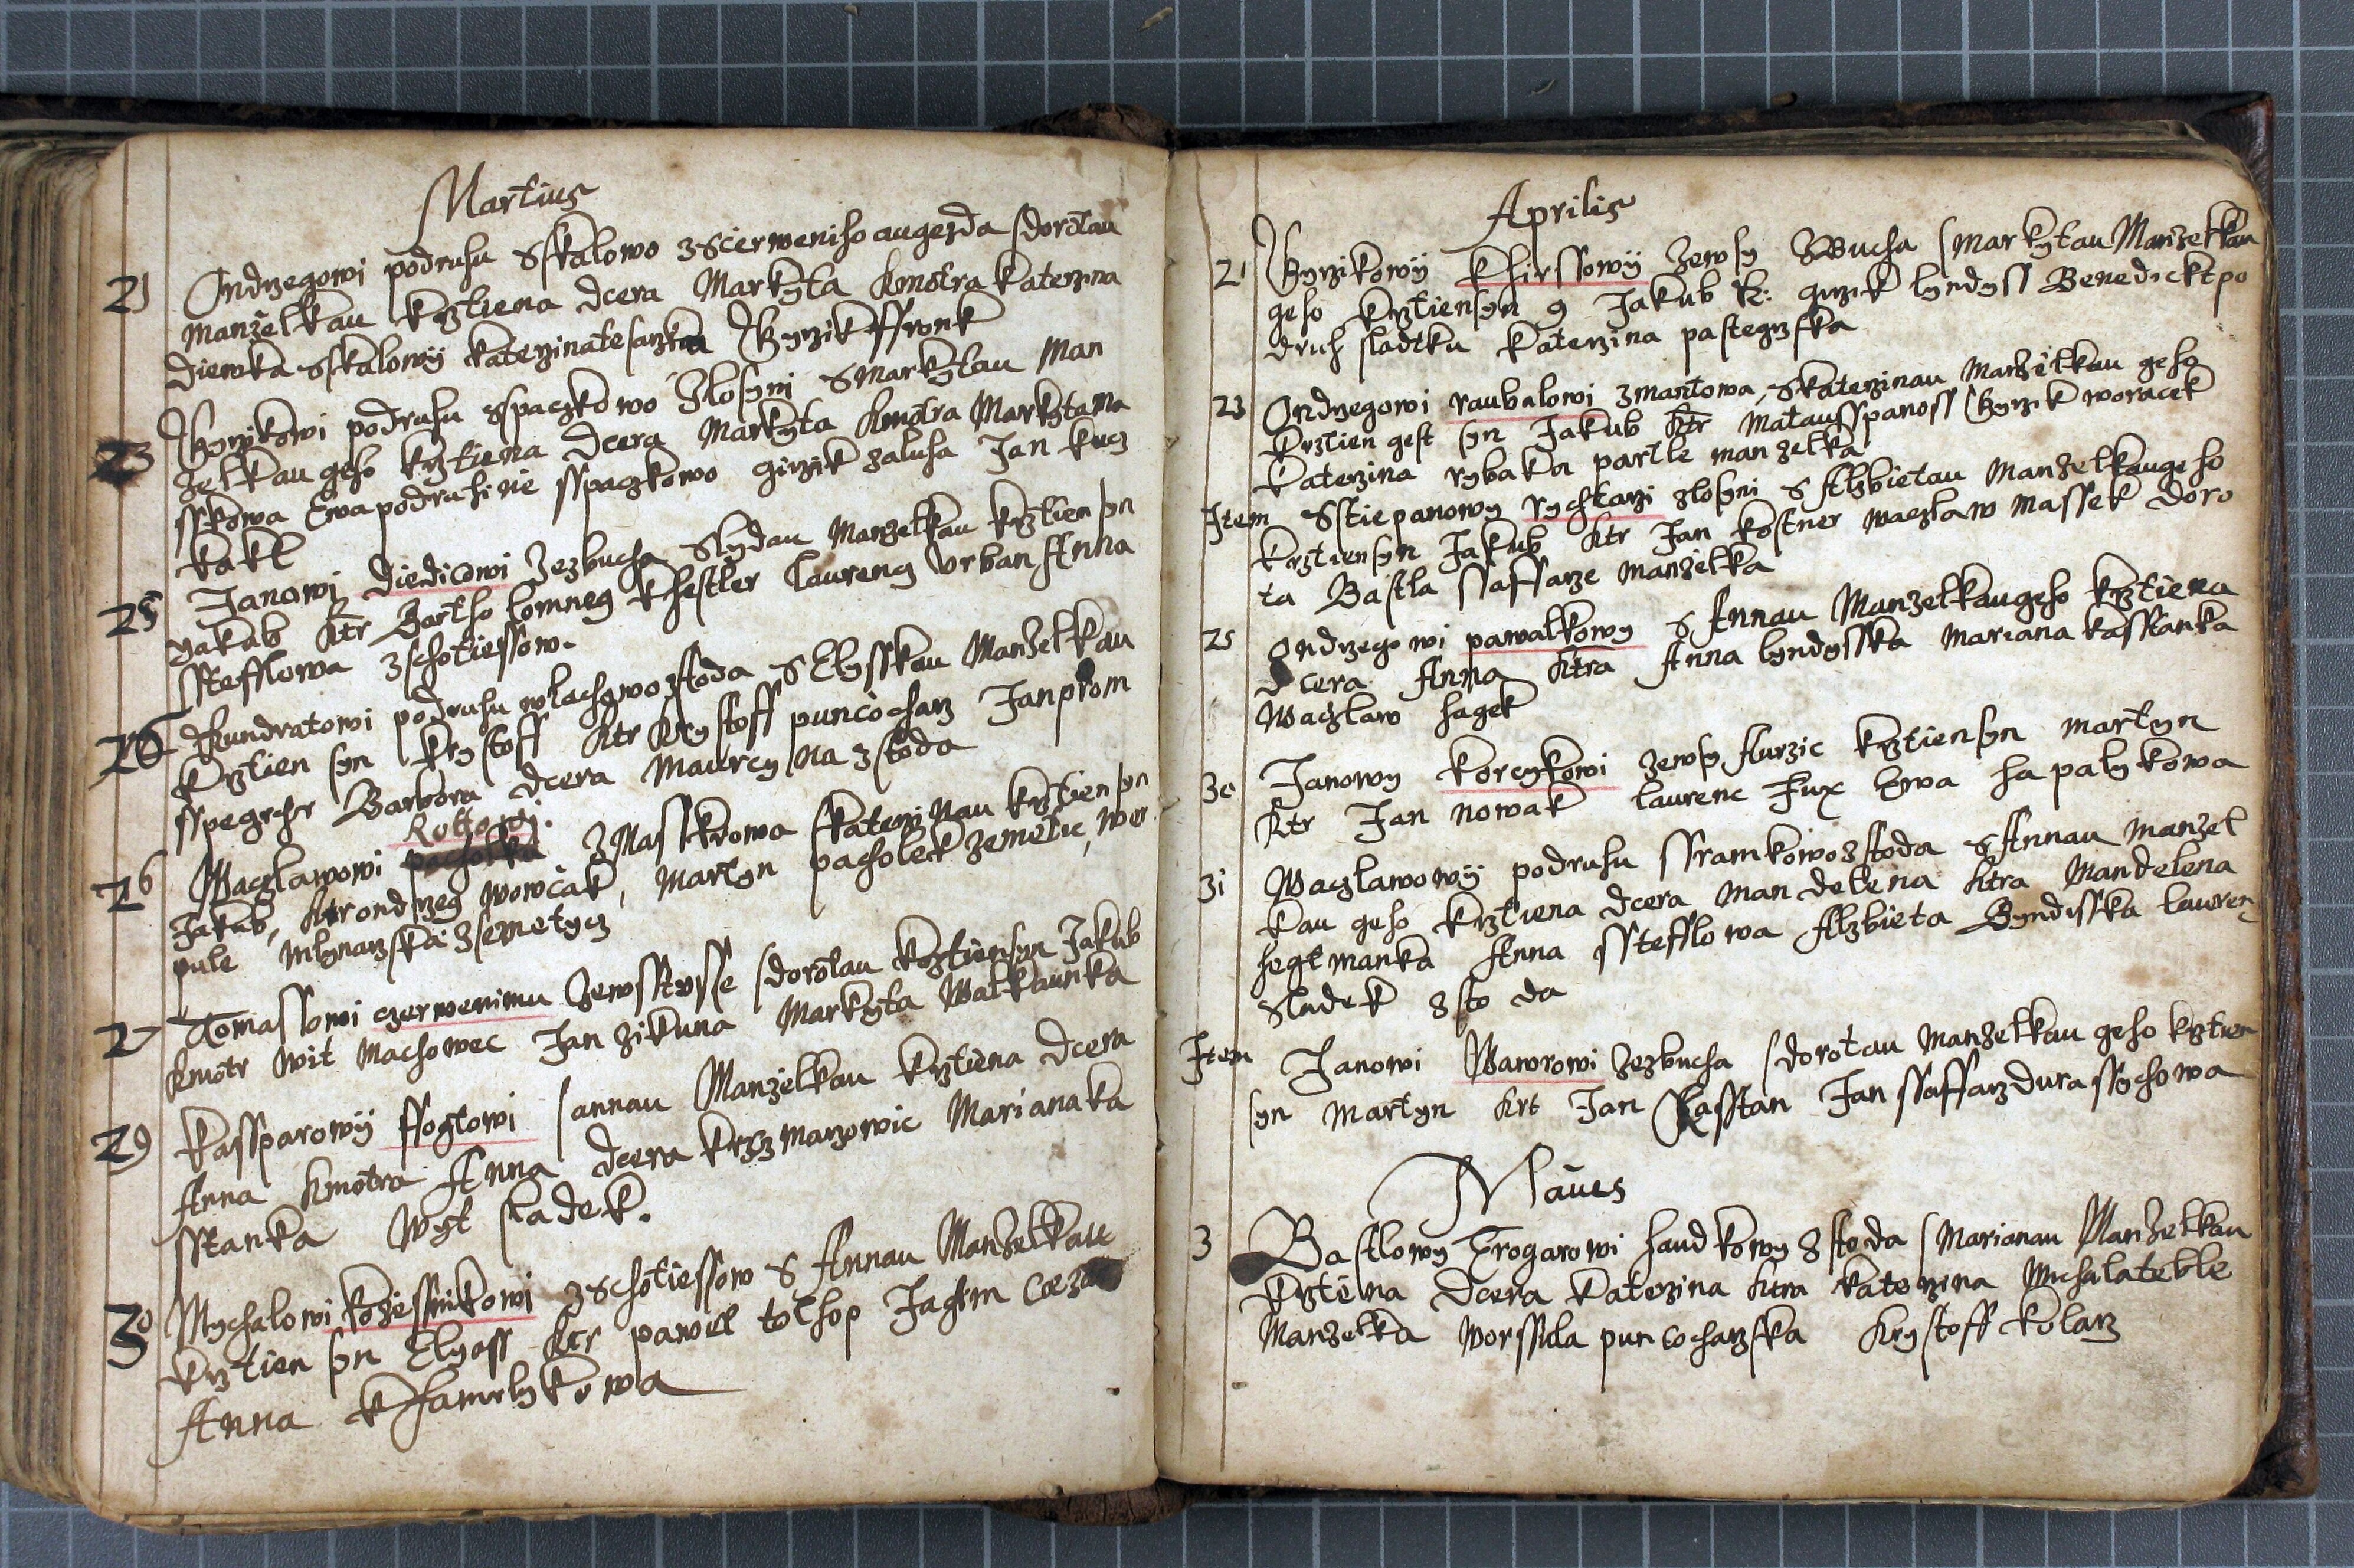 Martius
21 Ondrzegowi podruhu Sskalowo z Scierweniho augezda sdorotau
manželkau krztiena dcera Markyta kmotra katerzina
diewka Sskalowÿ katerzina tesarzka Gyrzik ffronk
23 Gyrzikowi podruhu sspaczkowo Zlosyni S Markytau Man
zelkau geho krztiena dcera Markyta kmotra Markyta Ma
sskowa Ewa podruhinie sspaczkowo girzik zaluha Jan kucz
kakl
25 Janowi diedicowi Zezbucha Slydau Manzelkau krztien syn
yakub ktr Bartho lomneg khestler laurencz Urban Anna
Stefflowa z schotiessow.
26 Kundratowi podruhu wlachowo ztoda S Elysskau Manželkau
krztien syn krystoff ktr krystoff puncocharz Jan prom
sspegrhr Barbora dcera Maurcy na z stoda
Rottowi.
26 Waczlawowi pacholku z Masstiowa skaterinau krztien syn
Jakub, ktr ondrzeg wowčak, Martyn pacholek zemetic, wor
pule Mlynarzska z semetycz
27 Tomassowi czerwenimu Zewsstysse sdorotau krztien syn Jakub
kmotr wit Machowec Jan zikuna Markyta Walkaunka
29 kassparowÿ ffogtowi sannau Manzelkau krztiena dcera
Anna kmotra Anna dcera krczmarzowic Mariana ka
sstanka Wyt sladek.
30 Mychalowi kožiessnikowi z schotiessow S Annau Manzelkau
krztien syn Elyass ktr pawel tolhop Jachim
Anna khamrlykowa
Aprilis
21 Gyrzikowÿ khirssowÿ Zewsy ZBucha sMarkytau Manzelkau
geho krztien syn g Jakub k: girzik lyndyss Benedickt po
druh sladku katerzina pastegrzska
23 Ondrzegowi raubalowi zmantowa, Skaterzinau Manželkau geho
krztien gest syn Jakub ktr Matauss panoss Gyrzik woracek
katerzina rybaka partle manzelka
Item Sstiepanowy rychtarzi zlosyni S Alzbietau Manzelkau geho
krztien syn Jakub ktr Jan kostner waczlaw Massek doro
ta Bastla ssaffarze manželka
25 Ondrzegowi pawalkowy S Annau Manzelkau geho krztiena
dcera Anna ktra Anna lyndysska Mariana kasstanka
Waczlaw hagek
30 Janowy korcykowi zewsy Aurzic krztien syn Martyn
ktr Jan nowak laurenc Fux Ewa ha palykowa
31 Waczlawowÿ podruhu ssramkowo z stoda S Annau manzel
kau geho krztiena dcera Mandelena ktra Mandelena
hegtmanka Anna sstefflowa Alzbieta Byndisska laurenc
Sladek z sto da
Item Janowi Wawrowi Zezbucha sdorotau Manzelkau geho krztien
syn Martyn krt Jan kasstan Jan ssaffarz dura ssychowa
Maius
3 Bastlowy Trogarowi haudkowy z stoda s Marianau Manželkau
krztiena dcera katerzina ktra katerzina Michala tekle
Manzelka Worssila puncocharzska krystoff kolarz